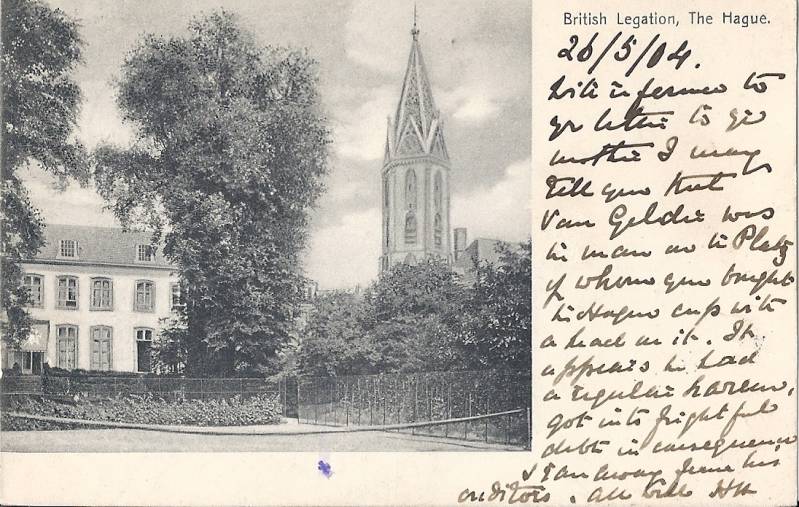 British Legation, The Hague.
26/5/04.
With reference to
yr letter to yr
mother I may
tell you that
Van Gelder was
the man on the Platz
of whom you bought
the Hague cup with
a head on it. It
appears he had
a regular harem,
got into frightful
debt in consequence
& ran away from his
creditors. All well HH